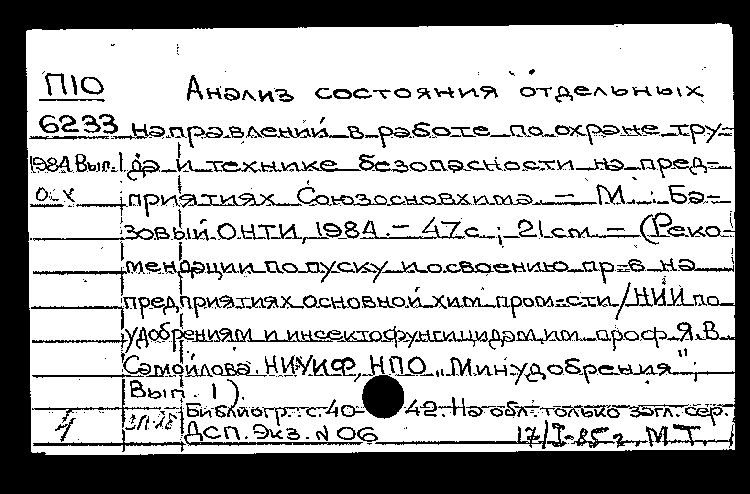 П10 Анализ состояния отдельных
6233 направлений в работе по охране тру-
1984 Вып.1 да и технике безопасности на пред-
приятиях Союзосновхима. – М. : Ба-
зовый ОНТИ, 1984. – 47с ; 21см – (Реко-
мендации по пуску и освоению пр-в на
предприятиях основной хим. пром-сти / НИИ по
удобрениям и инсектофунгицидам им. проф. Я.В.
Самойлова. НИУИФ, НПО „Минудобрения" ;
Вып. 1).
Библиогр.: с. 40-42. На обл. только загл. сер.
4 ДСП. Экз. N 06 17/I-85 г. М.Т.